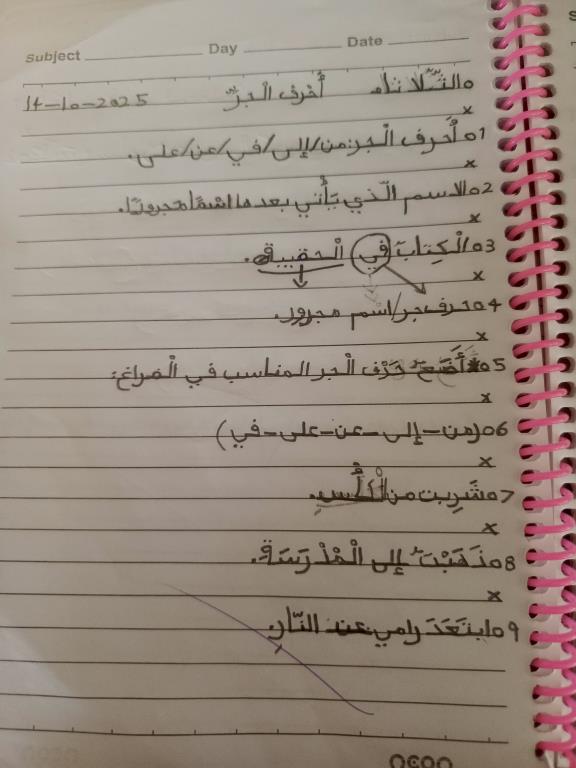 Subject Day Date
الثّلاثاء أحْرف الْجرّ 14-10-2025
x
1o أحَرف الْجر:من/إلى/في/عن/على.
x
2o الاسم الّذي يَأْتي بعدها اسْمًا مَجرورًا.
x
3o الْكِتابَ في الْحقيبة.
x
4o حرف جر/اسم مجرور.
x
5o أَضَعَ حَرْف الْجر المناسب في الْفراغ:
x
6o (من-إلى-عن-على-في)
x
7o شَرِبت من الْكأْسِ.
x
8o ذَهَبْتَ إلى الْمَدْرَسَةِ.
x
9o ابتَعَدَ رامي عند النّارِ.